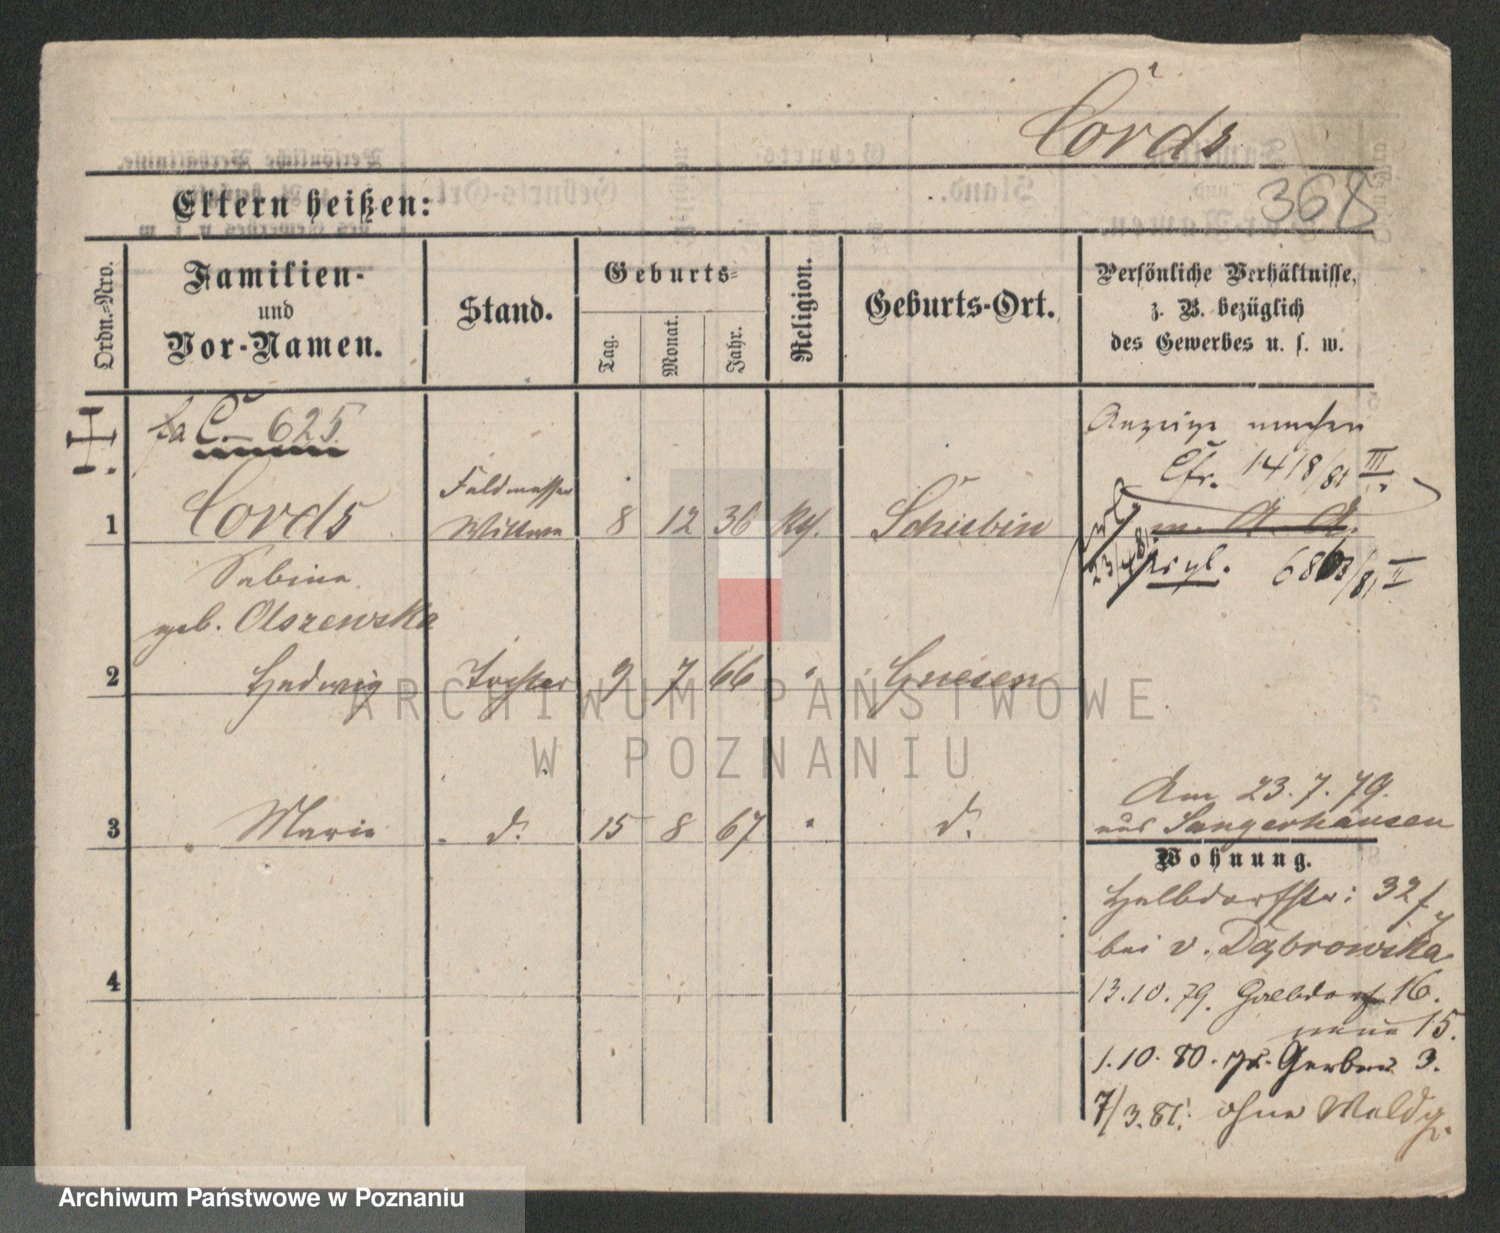 Cords
Eltern heißen:
368
Ordn.-Nro.
Familien-
und
Vor-Namen.
Stand.
Geburts-
Tag.
Monat.
Jahr.
Religion.
Geburts-Ort.
Persönliche Verhältnisse,
z. B. bezüglich
des Gewerbes u. s. w.
fa C. 625
Anzeige machen
Cfr. 1418/81 III
1 Cords Feldmesser Wittwe 8 12 36 Schubin
Sabina
geb. Olszewska
6803/81 II
2 Hedwig Tochter 9 7 66 " Gnesen
3 Marie d. 15 8 67 " d.
Am 23.7.79.
aus Sangerhausen
Wohnung.
Halbdorfstr: 32
bei v. Dąbrowska
4
13.10.79. Halbdorf 16.
neue 15.
1.10.80. Gr. Gerber 3.
7/3.81. ohne Meldg.
ARCHIWUM PAŃSTWOWE
W POZNANIU
Archiwum Państwowe w Poznaniu